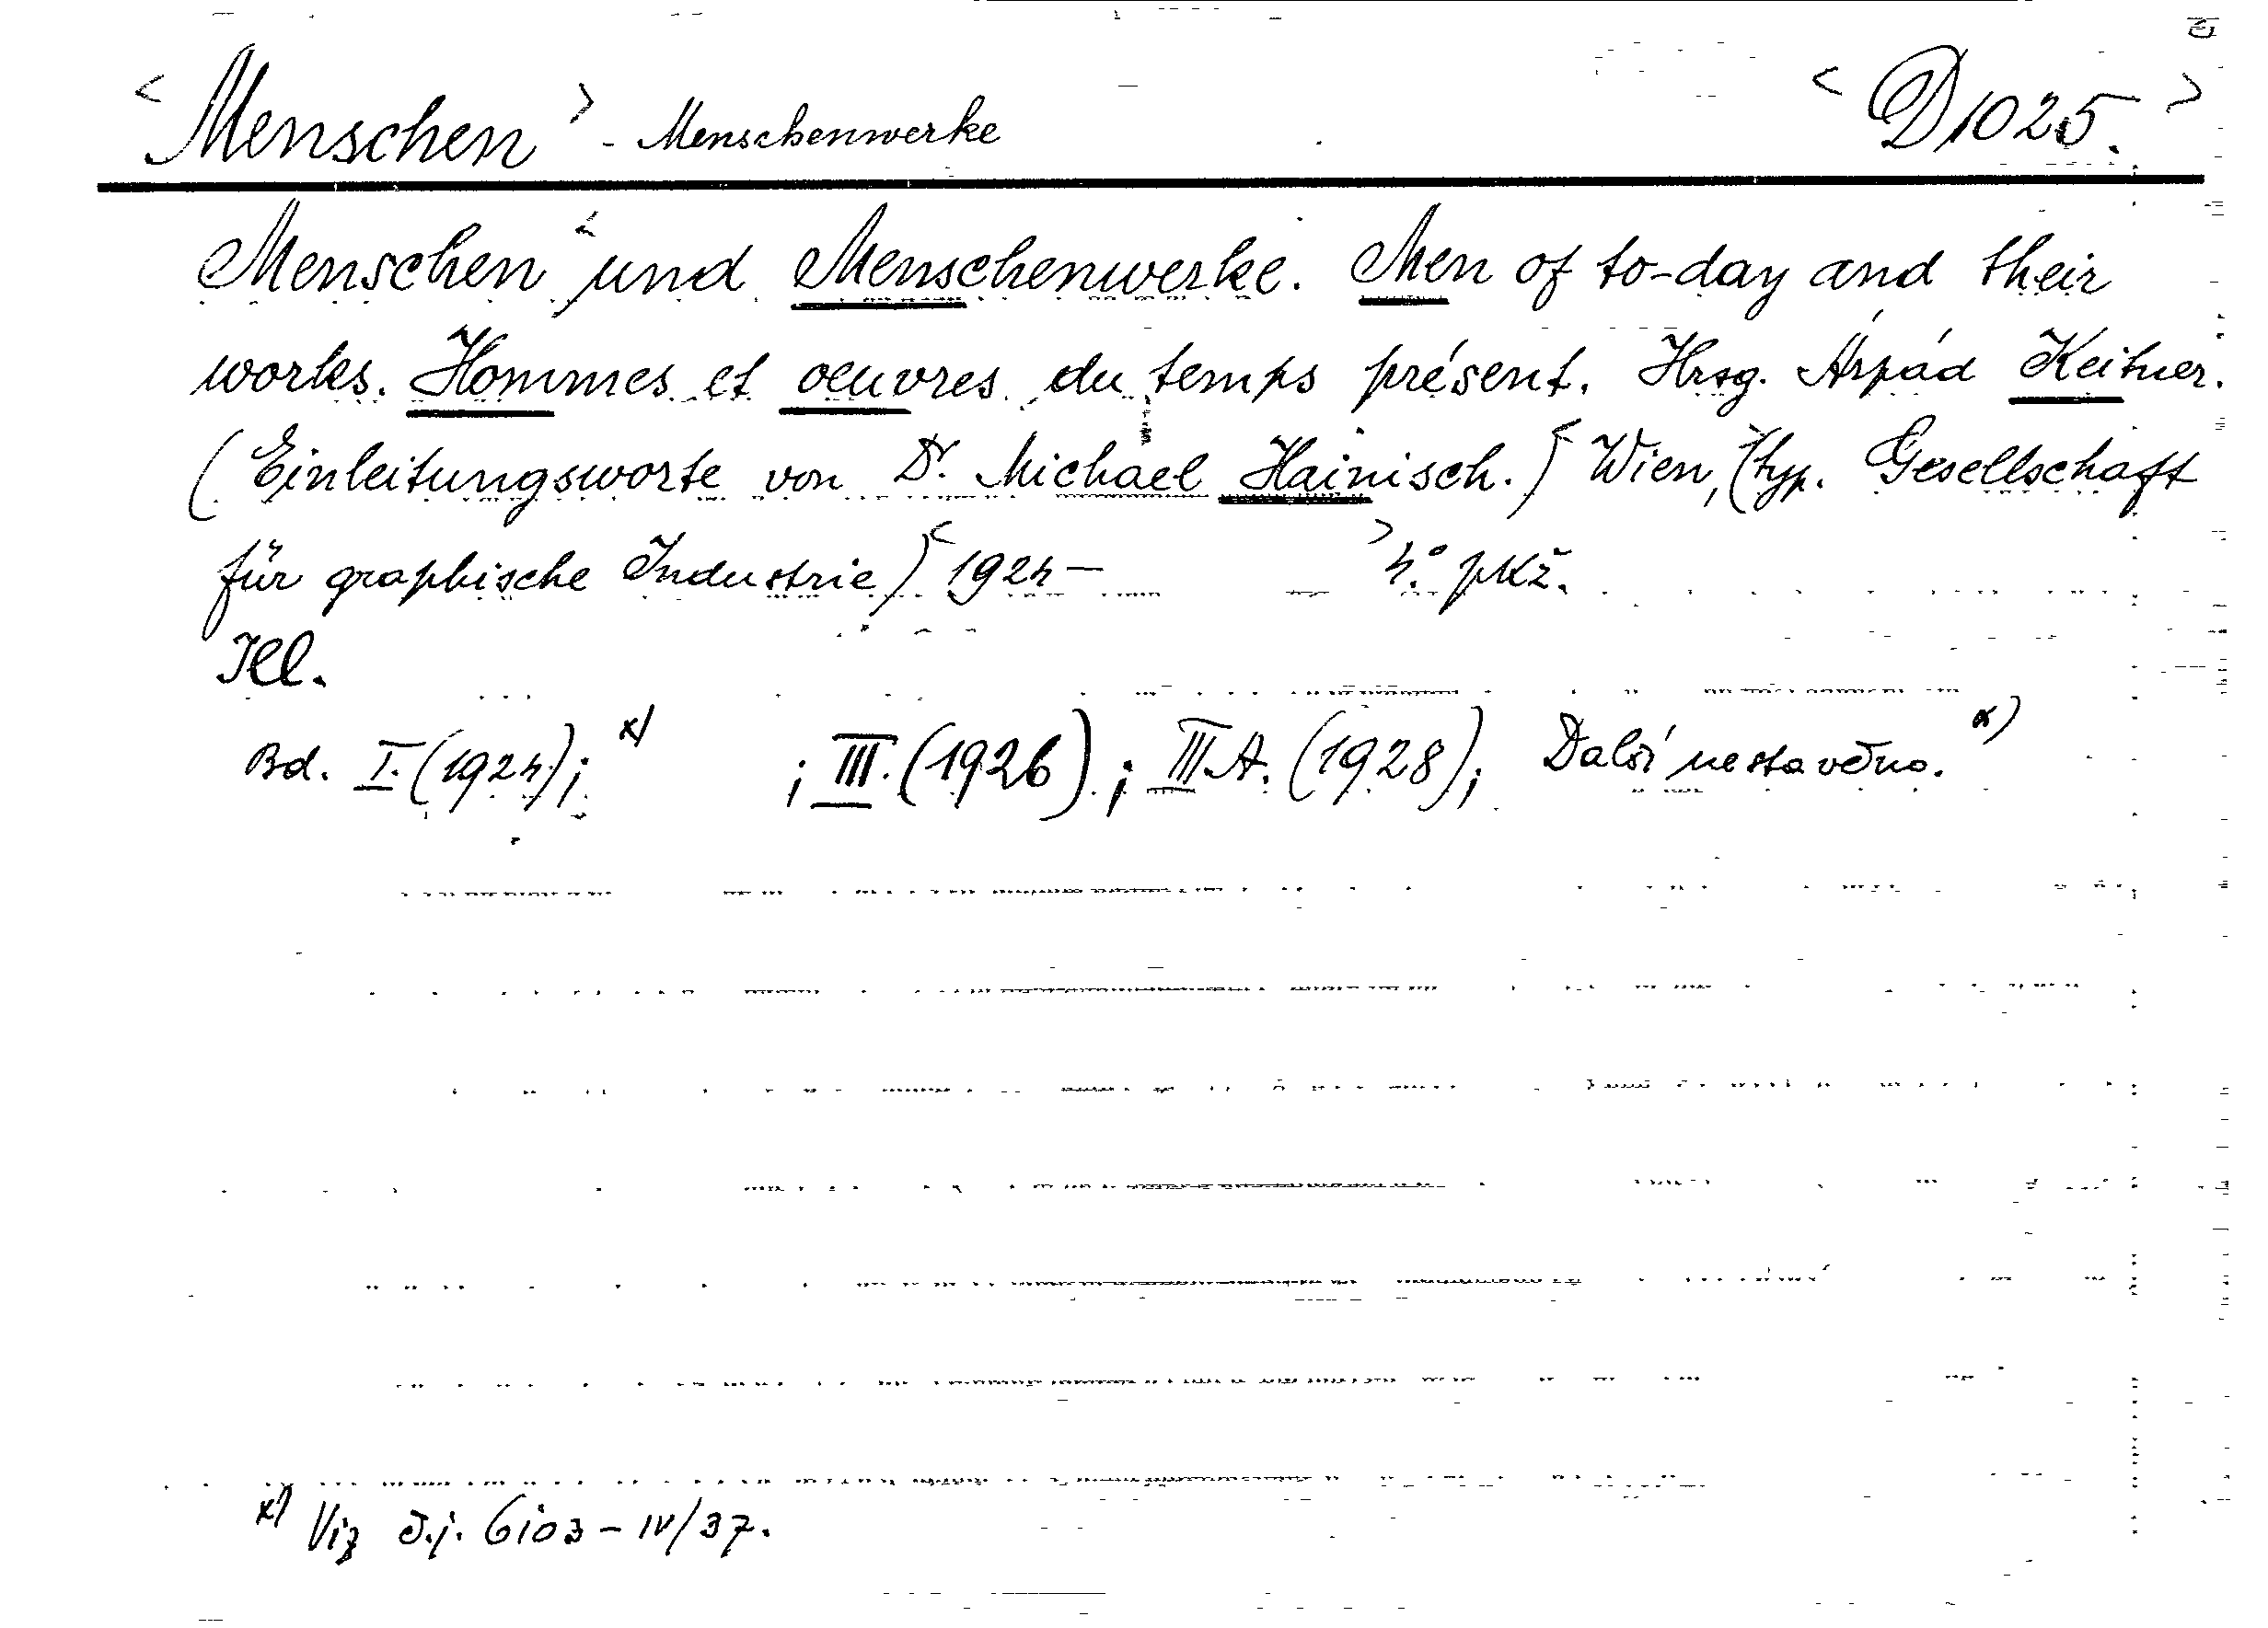 <Menschen> - Menschenwerke <D1025.>
Menschen und Menschenwerke. Men of to-day and their
works. Hommes et oeuvres du temps présent. Hrsg. Árpád Keitner.
(Einleitungsworte von Dr. Michael Hainisch.) Wien, (typ. Gesellschaft
für graphische Industrie) 1924— 4.° pKž.
Ill.
Bd. I. (1924); x) ; III. (1926); III A. (1928); Další nestavěno. x)
x) Viz č.j. 6103 - IV/37.